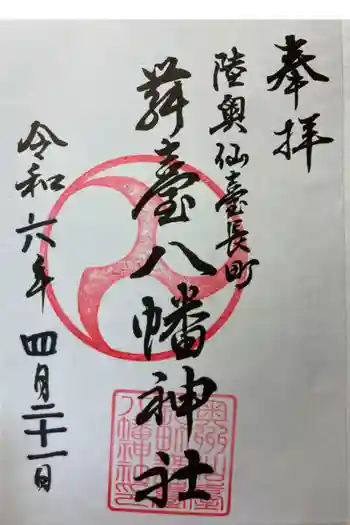 奉拝
陸奥仙臺長町
舞臺八幡神社
令和六年四月二十一日